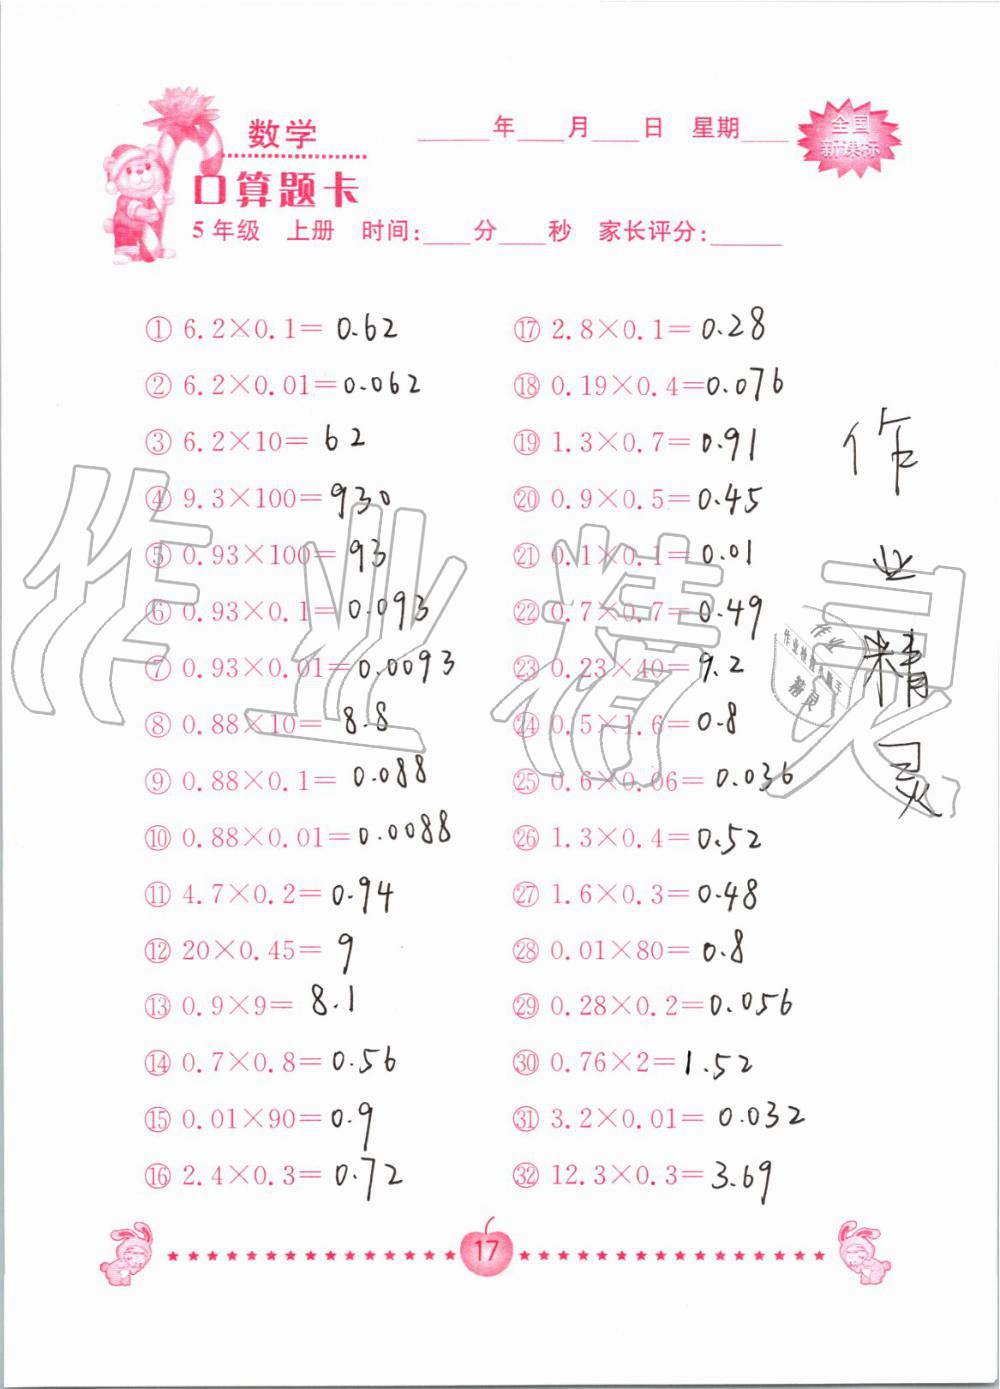 数学
____年____月____日 星期____
全国
新课标
口算题卡
5年级 上册 时间:____分____秒 家长评分:______
① 6.2×0.1= 0.62
② 6.2×0.01= 0.062
③ 6.2×10= 62
④ 9.3×100= 930
⑤ 0.93×100= 93
⑥ 0.93×0.1= 0.093
⑦ 0.93×0.01= 0.0093
⑧ 0.88×10= 8.8
⑨ 0.88×0.1= 0.088
⑩ 0.88×0.01= 0.0088
⑪ 4.7×0.2= 0.94
⑫ 20×0.45= 9
⑬ 0.9×9= 8.1
⑭ 0.7×0.8= 0.56
⑮ 0.01×90= 0.9
⑯ 2.4×0.3= 0.72
⑰ 2.8×0.1= 0.28
⑱ 0.19×0.4= 0.076
⑲ 1.3×0.7= 0.91
⑳ 0.9×0.5= 0.45
㉑ 0.1×0.1= 0.01
㉒ 0.7×0.7= 0.49
㉓ 0.23×40= 9.2
㉔ 0.5×1.6= 0.8
㉕ 0.6×0.06= 0.036
㉖ 1.3×0.4= 0.52
㉗ 1.6×0.3= 0.48
㉘ 0.01×80= 0.8
㉙ 0.28×0.2= 0.056
㉚ 0.76×2= 1.52
㉛ 3.2×0.01= 0.032
㉜ 12.3×0.3= 3.69
作业精灵
作业精灵
17